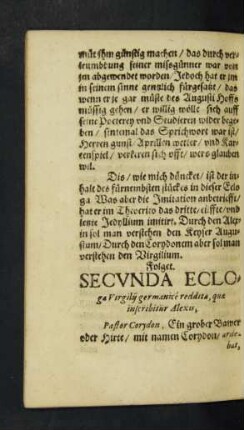 müt jhm günstig machen / das durch ver-
leumbdung seiner mißgünner war von
jm abgewendet worden / Jedoch hat er jm
in seinem sinne gentzlich fürgesatzt / das
wenn er je gar müste des Augusti Hoffs
müssig gehen / er willig wölle sich auff
seine Poeterey vnd Studieren wider bege-
ben / sintemal das Sprichwort war ist /
Herren gunst / Aprillen wetter / vnd Kar-
tenspiel / verkeren sich offt / wers glauben
wil.
Dis / wie mich düncket / ist der in-
halt des fürnembsten stückes in dieser Eclo-
ga Was aber die Imitation anbetriefft /
hat er im Theocrito das dritte / eilffte / vnd
letzte Jedyllium imitirt. Durch den Alep-
in sol man verstehen den Keyser Augu-
stum / Durch den Corydonem aber sol man
verstehen den Virgilium.
Folget.
SECVNDA ECLO-
ga Virgilij germanicè reddita, quæ
inscribitur Alexis,
Pastor Corydon, Ein grober Bawer
oder Hirte / mit namen Corydon / ardebat,